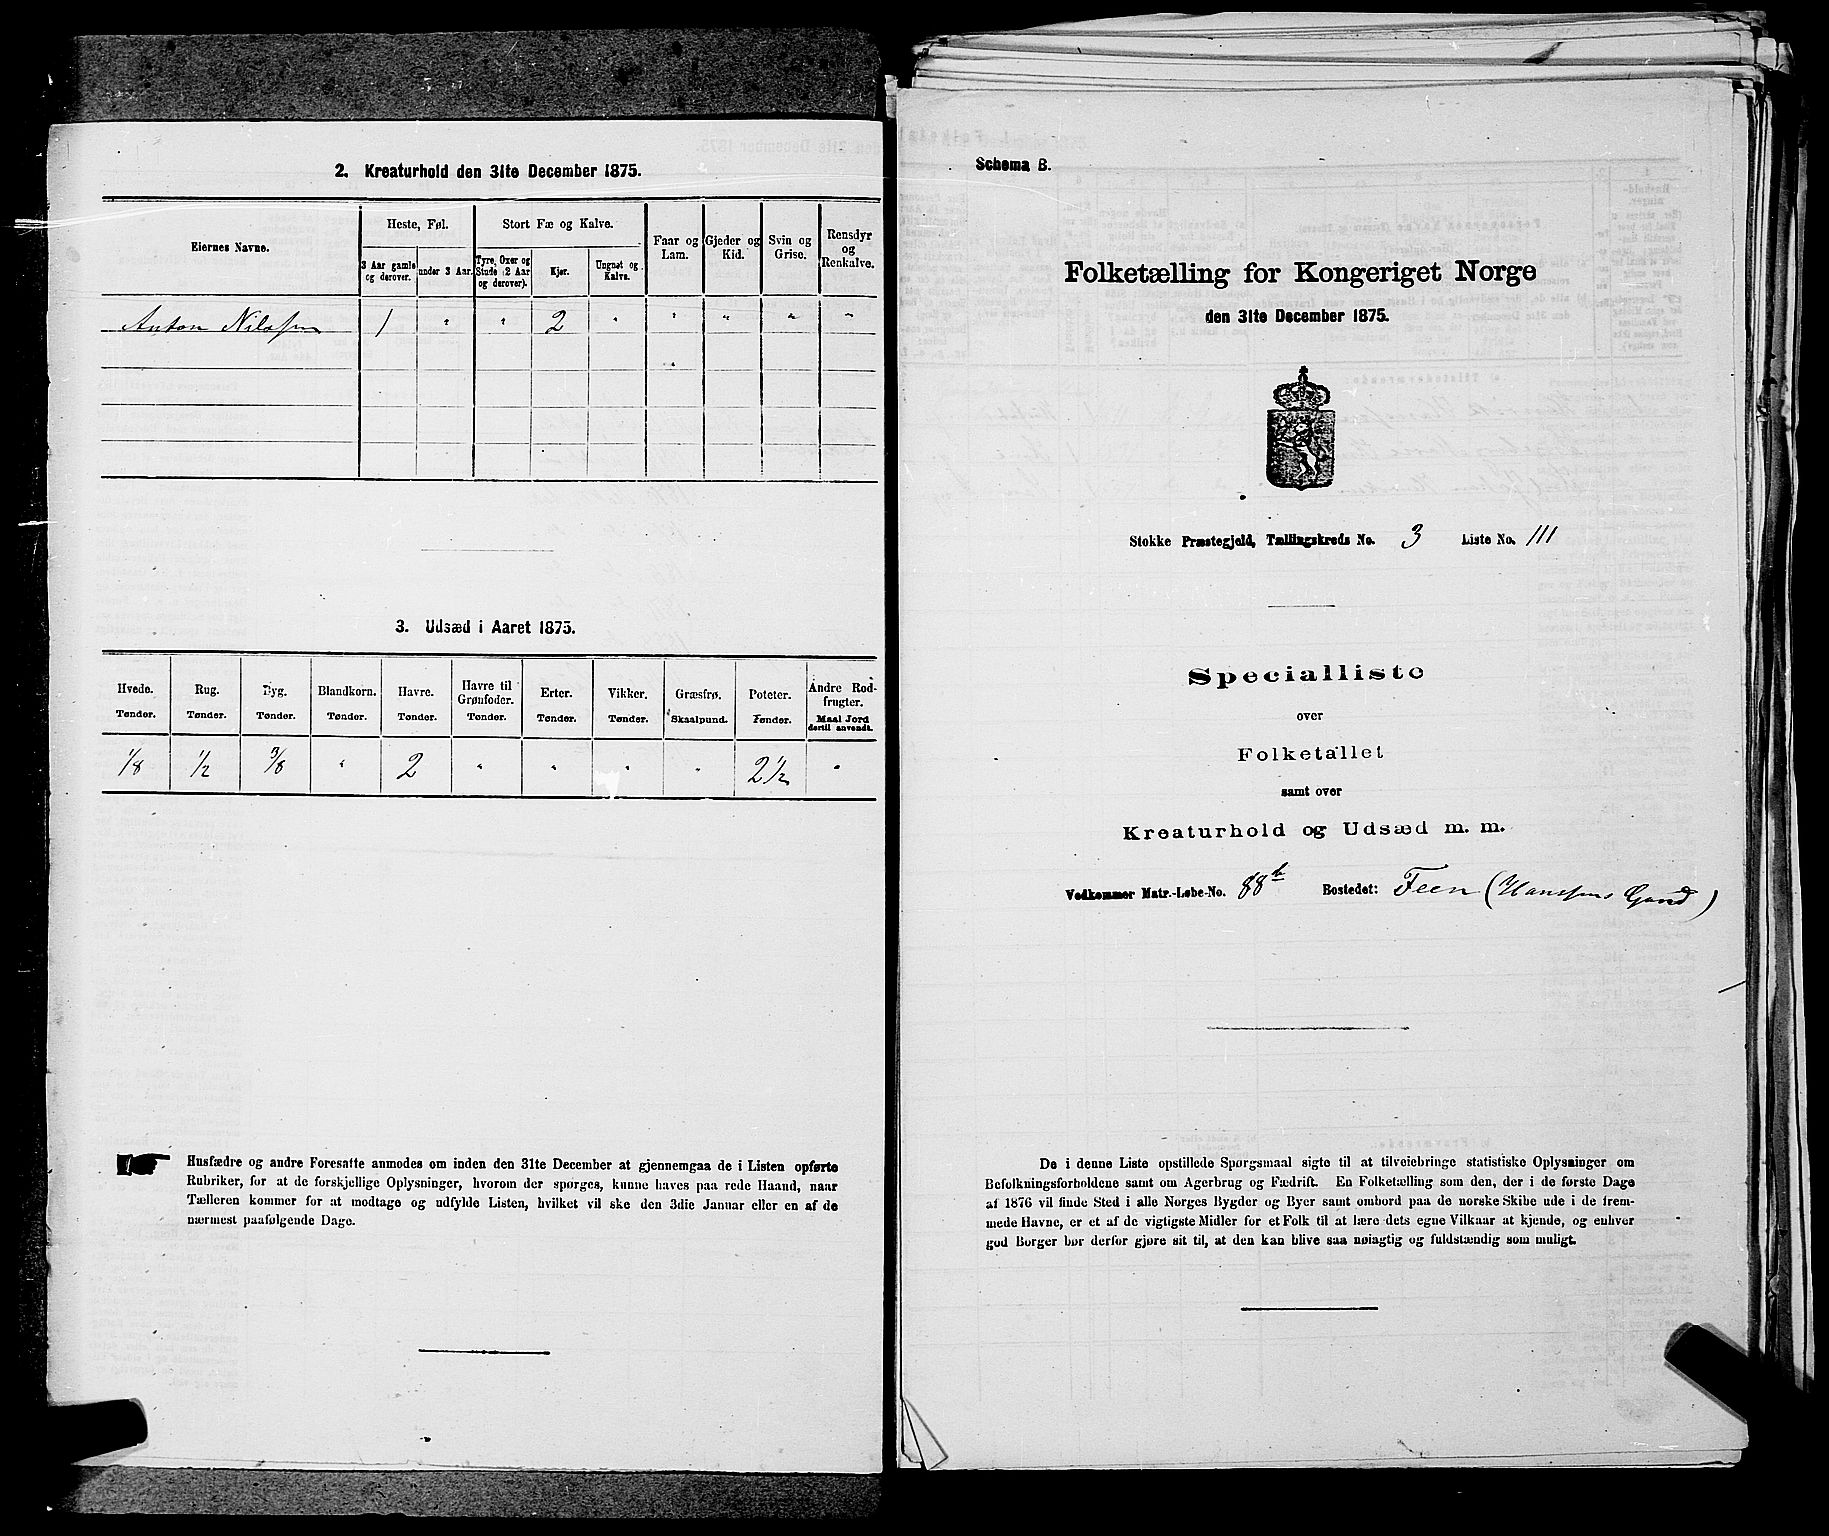 2. Kreaturhold den 31te December 1875.
Eiernes Navne.
Heste, Føl.
Stort Fæ og Kalve.
Faar og Lam.
Gjeder og Kid.
Svin og Grise.
Rensdyr og Renkalve.
3 Aar gamle og derover.
under 3 Aar.
Tyre, Oxer og Stude (2 Aar og derover).
Kjør.
Ungnøt og Kalve.
Anton Nilssen 1 " " 2 " " " " "
3. Udsæd i Aaret 1875.
Hvede. Rug. Byg. Blandkorn. Havre. Havre til Grønfoder. Erter. Vikker. Græsfrø. Poteter. Andre Rodfrugter.
Tønder. Tønder. Tønder. Tønder. Tønder. Tønder. Tønder. Tønder. Skaalpund. Tønder. Maal Jord dertil anvendt.
1/8 1/2 3/8 " 2 " " " " 2 1/2 "
Husfædre og andre Foresatte anmodes om inden den 31te December at gjennemgaa de i Listen opførte
Rubriker, for at de forskjellige Oplysninger, hvorom der spørges, kunne haves paa rede Haand, naar
Tælleren kommer for at modtage og udfylde Listen, hvilket vil ske den 3die Januar eller en af de
nærmest paafølgende Dage.
Schema B.
Folketælling for Kongeriget Norge
den 31te December 1875.
Stokke Præstegjeld, Tællingskreds No. 3 Liste No. 111
Specialliste
over
Folketallet
samt over
Kreaturhold og Udsæd m. m.
Vedkommer Matr.-Løbe-No. 88b Bostedet: Feen (Hanssens Gaard)
De i denne Liste opstillede Spørgsmaal sigte til at tilveiebringe statistiske Oplysninger om
Befolkningsforholdene samt om Agerbrug og Fædrift. En Folketælling som den, der i de første Dage
af 1876 vil finde Sted i alle Norges Bygder og Byer samt ombord paa de norske Skibe ude i de frem-
mede Havne, er et af de vigtigste Midler for et Folk til at lære dets egne Vilkaar at kjende, og enhver
god Borger bør derfor gjøre sit til, at den kan blive saa nøiagtig og fuldstændig som muligt.